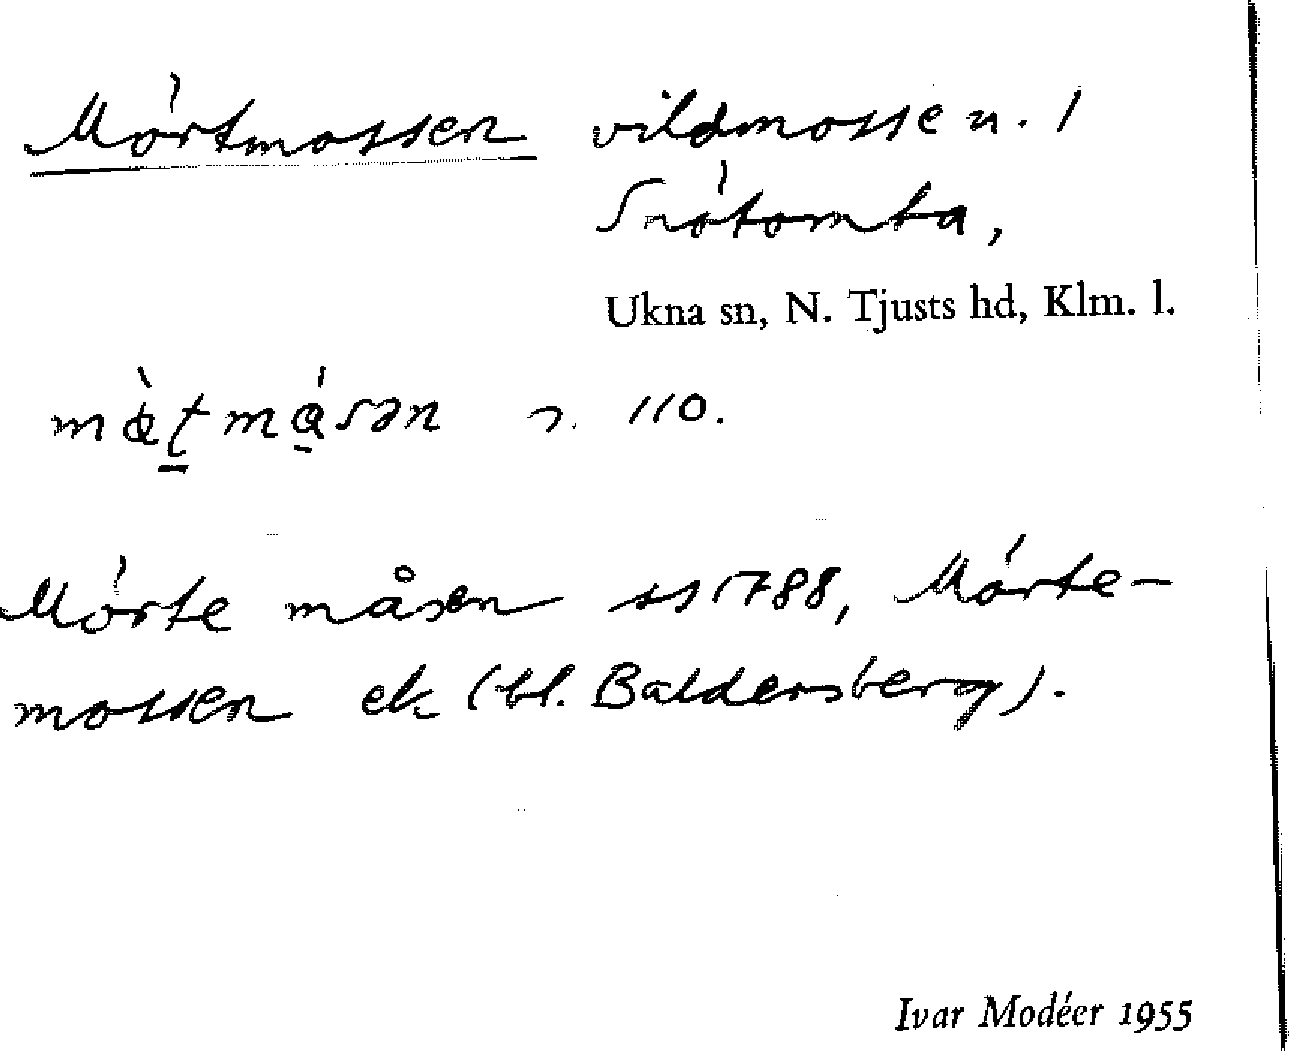 Mörtmossen vildmosse u. /
Snötomta,
Ukna sn, N. Tjusts hd, Klm. l.
110.
Mörte måsen ss 1788, Mörte-
mossen ek (bl. Baldersberg).
Ivar Modéer 1955